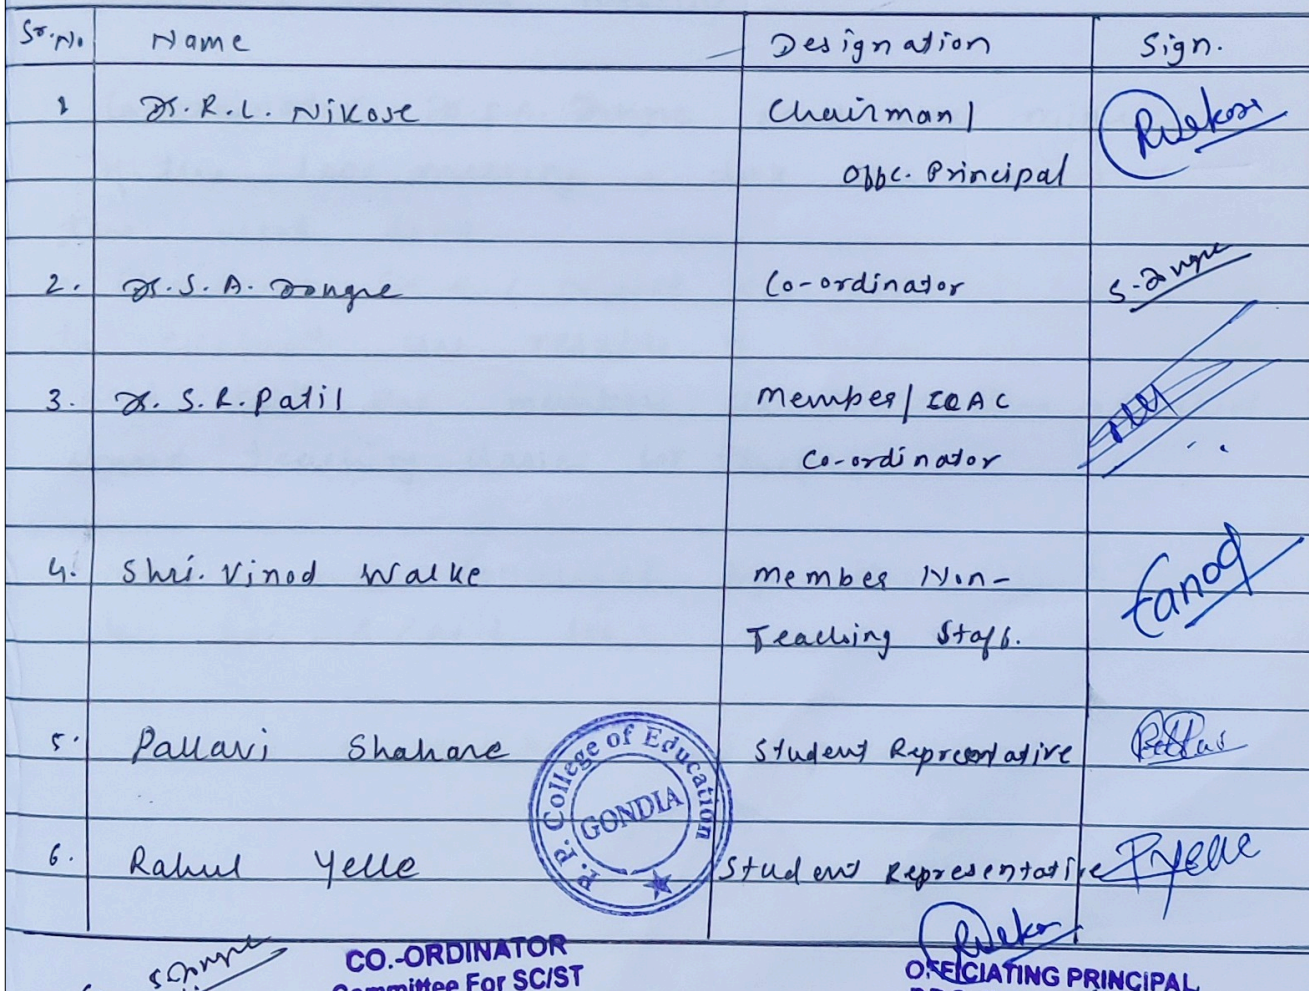 Sr.No. Name Designation Sign.
1 Dr. R. L. Nikose Chairman/
Offc. Principal
2. Dr. S. A. Dongre Co-ordinator S. Dongre
3. Dr. S. R. Patil Member/ IQAC
Co-ordinator
4. Shri. Vinod Walke Member Non-
Teaching Staff.
5. Pallavi Shahare Student Representative
6. Rahul Yelle Student Representative
P. P. College of Education
GONDIA
S. Dongre
CO.-ORDINATOR
Committee For SC/ST
OFFICIATING PRINCIPAL